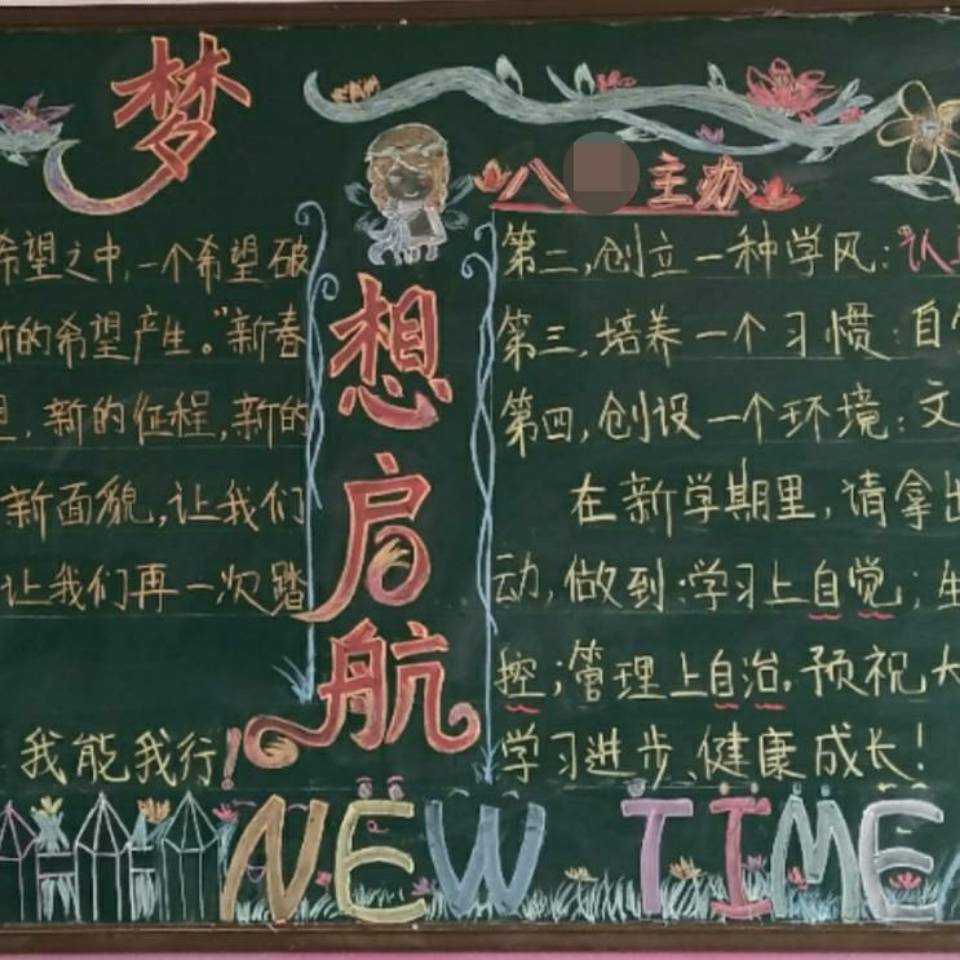 梦
想
启
航
希望之中,一个希望破
的希望产生。"新春
新的征程,新的
新面貌,让我们
让我们再一次踏
我能我行!
八 主办
第二,创立一种学风:"认
第三,培养一个习惯:自
第四,创设一个环境:文
在新学期里,请拿出
动,做到:学习上自觉;生
控;管理上自治。预祝大
学习进步、健康成长!
NEW TIME